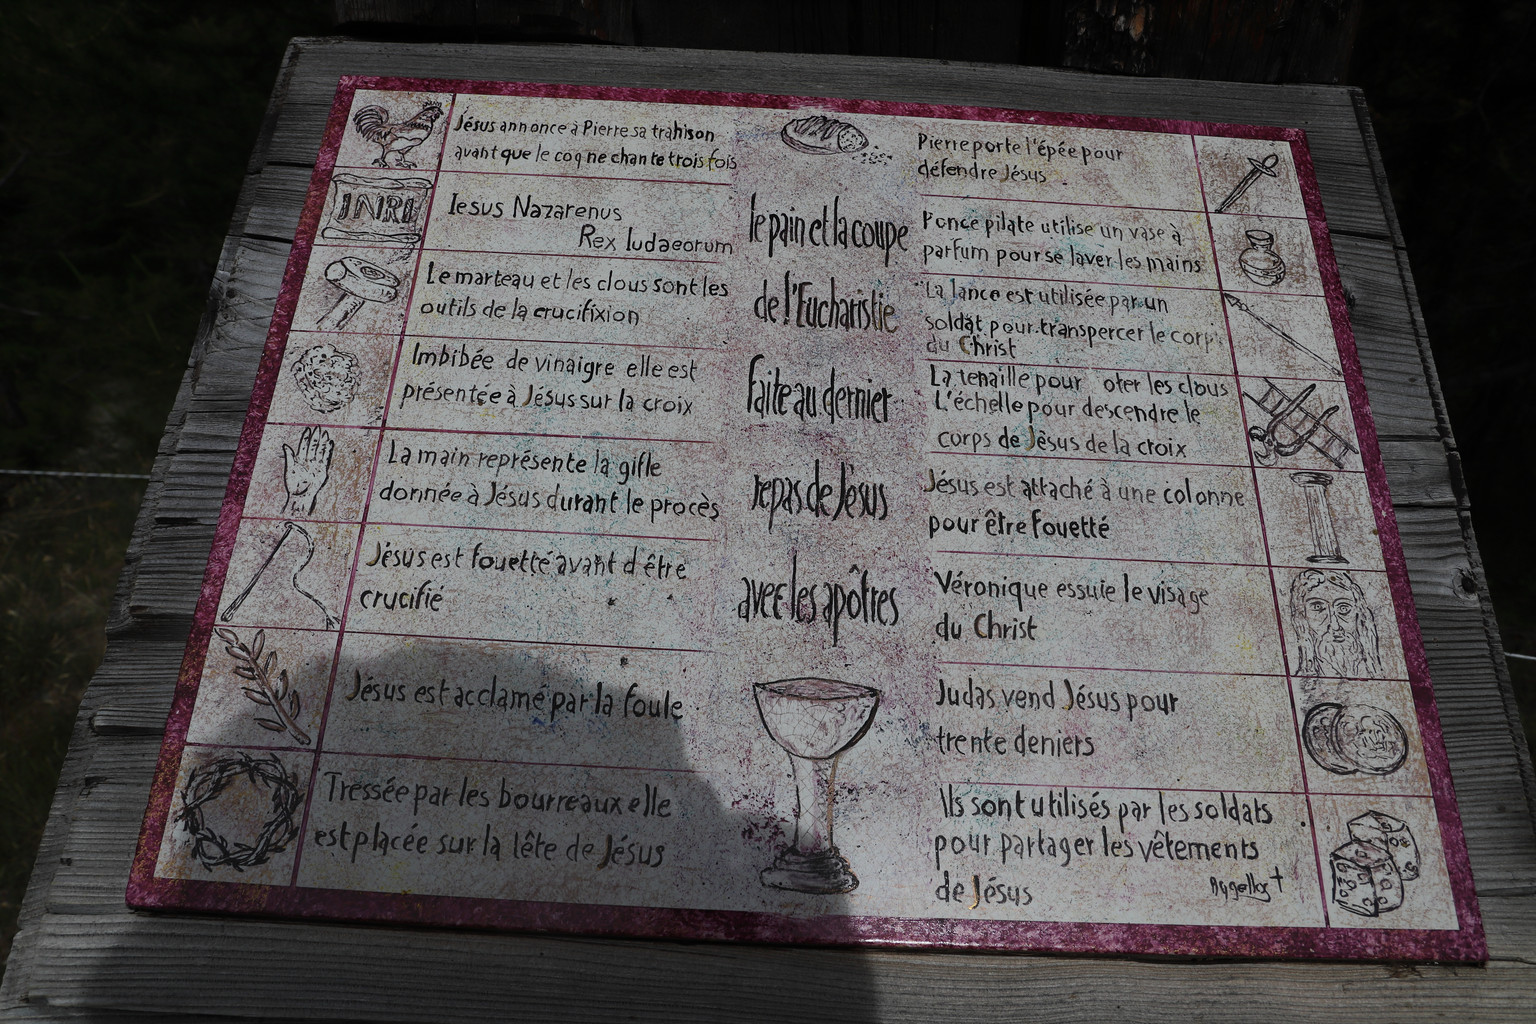 Jésus annonce à Pierre sa trahison
avant que le coq ne chante trois fois
INRI
Iesus Nazarenus
Rex Iudaeorum
Le marteau et les clous sont les
outils de la crucifixion
Imbibée de vinaigre elle est
présentée à Jésus sur la croix
La main représente la gifle
donnée à Jésus durant le procès
Jésus est fouetté avant d être
crucifié
Jésus est acclamé par la foule
Tressée par les bourreaux elle
est placée sur la tête de Jésus
le pain et la coupe
de l'Eucharistie
faite au dernier
repas de Jésus
avec les apôtres
Pierre porte l'épée pour
défendre Jésus
Ponce pilate utilise un vase à
parfum pour se laver les mains
La lance est utilisée par un
soldat pour transpercer le corps
du Christ
La tenaille pour oter les clous
L'échelle pour descendre le
corps de Jèsus de la croix
Jésus est attaché à une colonne
pour être fouetté
Véronique essuie le visage
du Christ
Judas vend Jésus pour
trente deniers
Ils sont utilisés par les soldats
pour partager les vêtements
de Jésus
Aggellos